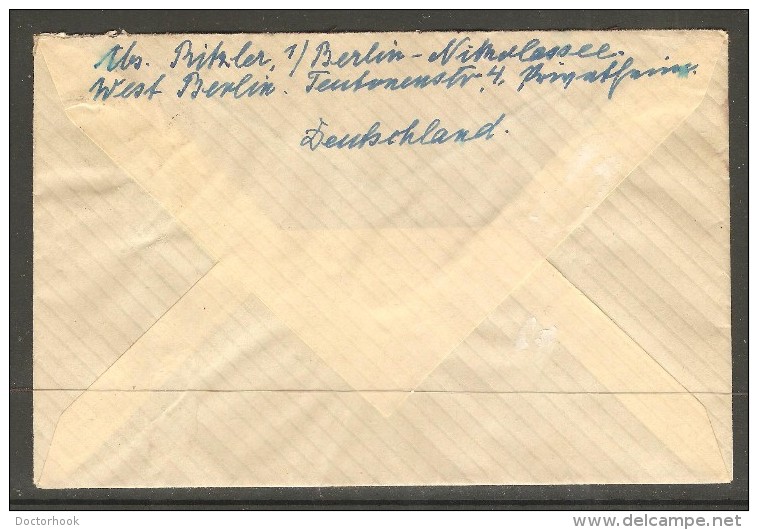 Abs. Ritzler, 1/Berlin-Nikolassee.
West Berlin. Teutonenstr. 4, Privatheim.
Deutschland.
Doctorhook
www.delcampe.net